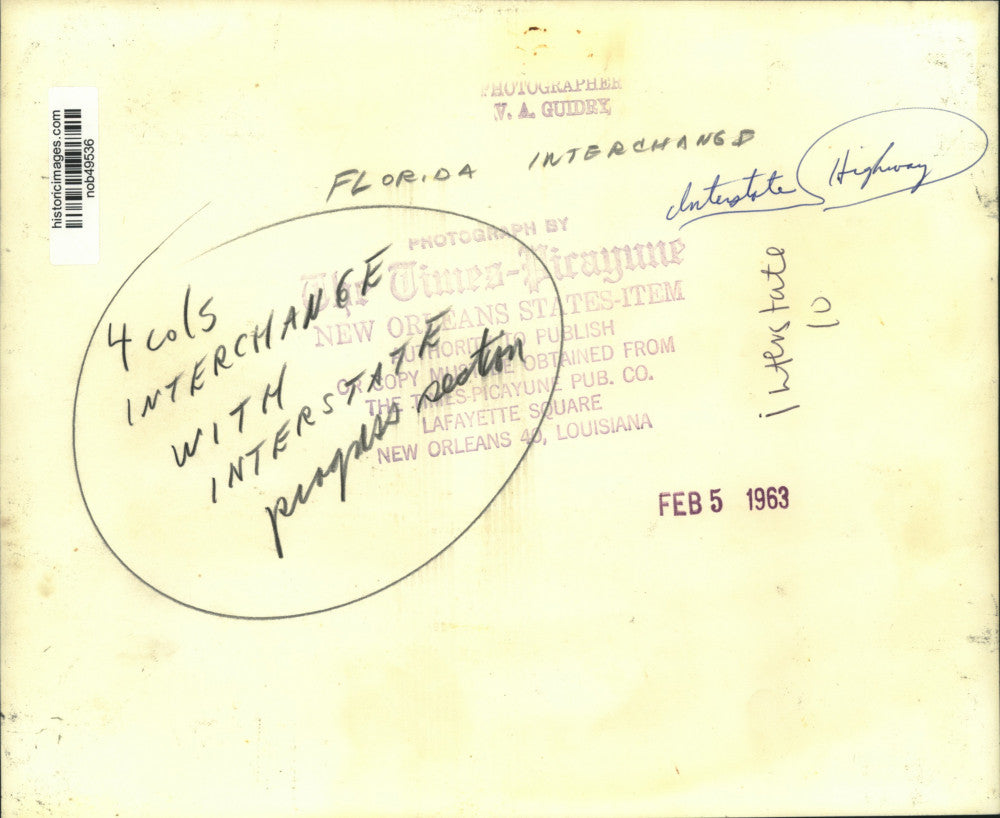 historicimages.com
nob49536
PHOTOGRAPHER
V. A. GUIDRY
FLORIDA INTERCHANGE
Interstate Highway
PHOTOGRAPH BY
The Times-Picayune
NEW ORLEANS STATES-ITEM
AUTHORITY TO PUBLISH
OR COPY MUST BE OBTAINED FROM
THE TIMES-PICAYUNE PUB. CO.
LAFAYETTE SQUARE
NEW ORLEANS 40, LOUISIANA
4 cols
INTERCHANGE
WITH
INTERSTATE
progress section
interstate
10
FEB 5 1963